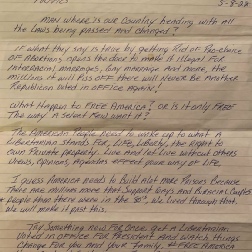 5-8-22
MAN where is our Country heading with all
the Laws being passed and changed?
IF what they say is true by getting Rid of Pro-choice
OF Abortions opens the door to make it illegal For
Interracial marriages, Gay marriage and more, the
millions it will Piss off there will NEVER Be Another
Republican voted in office Again!
What Happen to FREE America! OR is it only Free
The way A select Few want it?
The American People need to wake up to what A
Libertarian stands For, Life, Liberty, the Right to
own Private Property. Live And let Live without others
views, opinions, Agendas effect your way of Life.
I guess America needs to Build alot more Prisons Because
There are millions more that Support Gays And Biracial Couples
People than there were in the 50's, We lived through that
We will make it past this.
Try Something New For Once, get A Libertarian
Voted in office For President And watch things
Change For you And Your Family. # FREE AMERICA